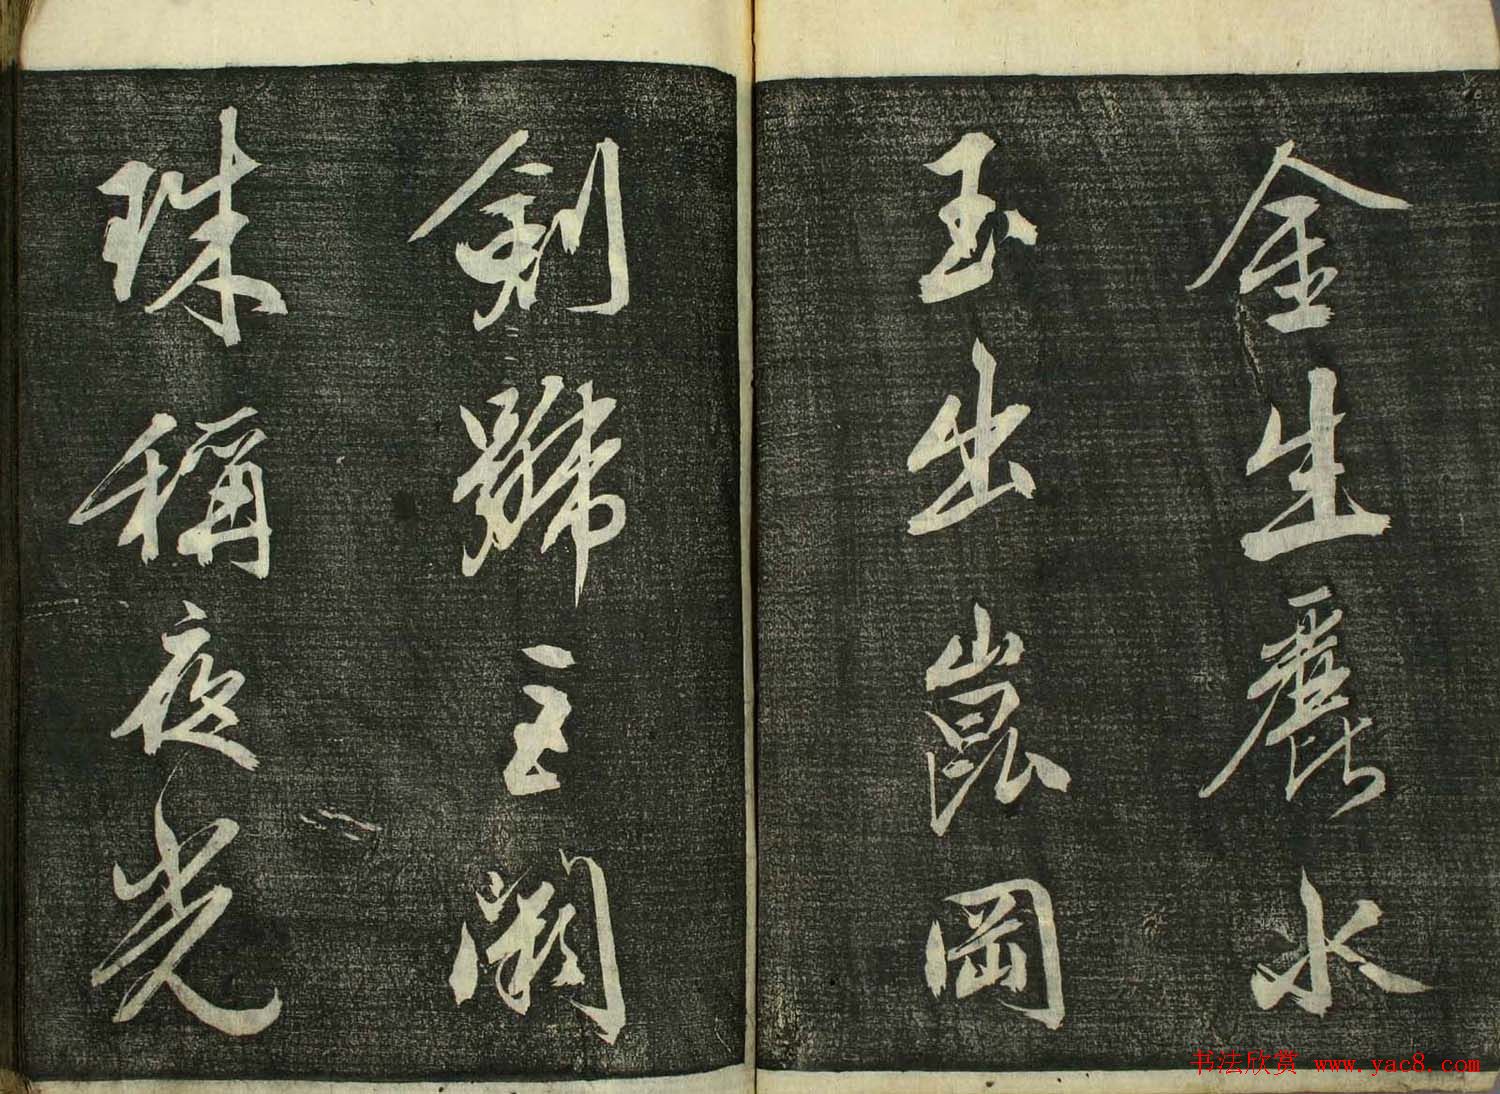 金生麗水
玉出崑岡
劍號巨闕
珠稱夜光
书法欣赏 www.yac8.com